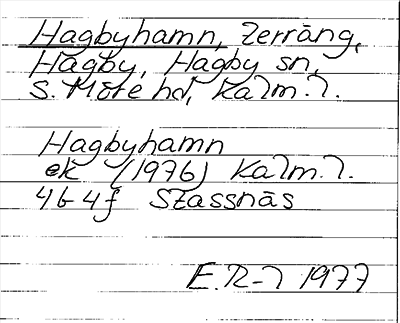 Hagbyhamn, terräng,
Hagby, Hagby sn,
S. Möre hd, Kalm. l.
Hagbyhamn
ek (1976) Kalm. l.
4G 4f Stassnäs
E.R-l 1977